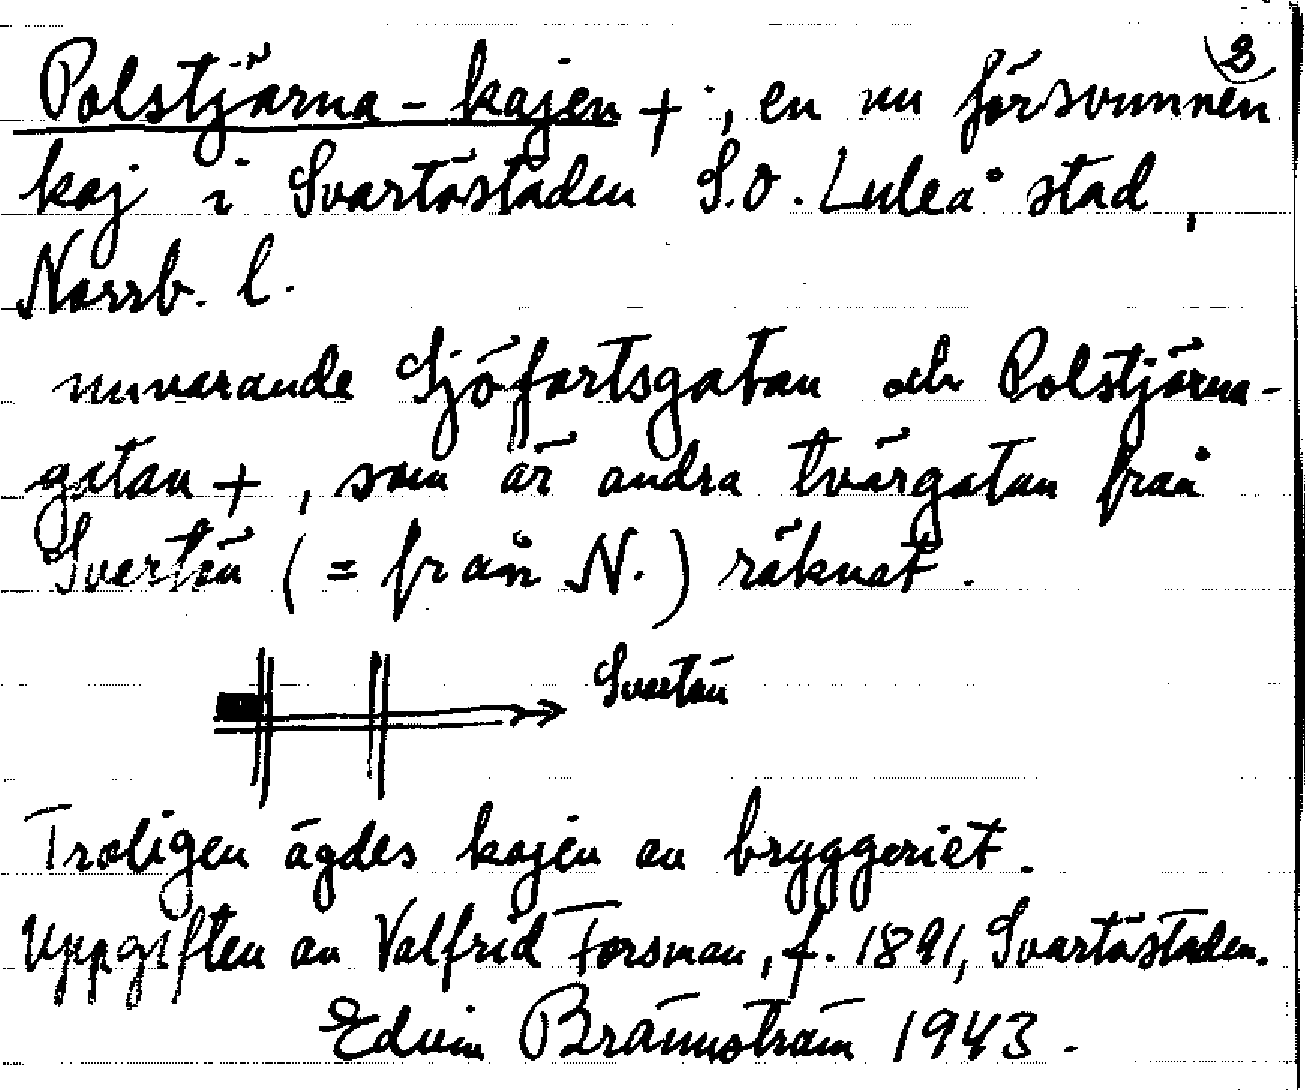 2
Polstjärna-kajen +, en nu försvunnen
kaj i Svartöstaden S.O. Luleå stad,
Norrb. l.
nuvarande Sjöfartsgatan och Polstjärna-
gatan +, som är andra tvärgatan från
Svartön (= från N.) räknat.
Svartön
Troligen ägdes kajen av bryggeriet.
Uppgiften av Valfrid Forsman, f. 1891, Svartöstaden.
Edvin Brännström 1943.